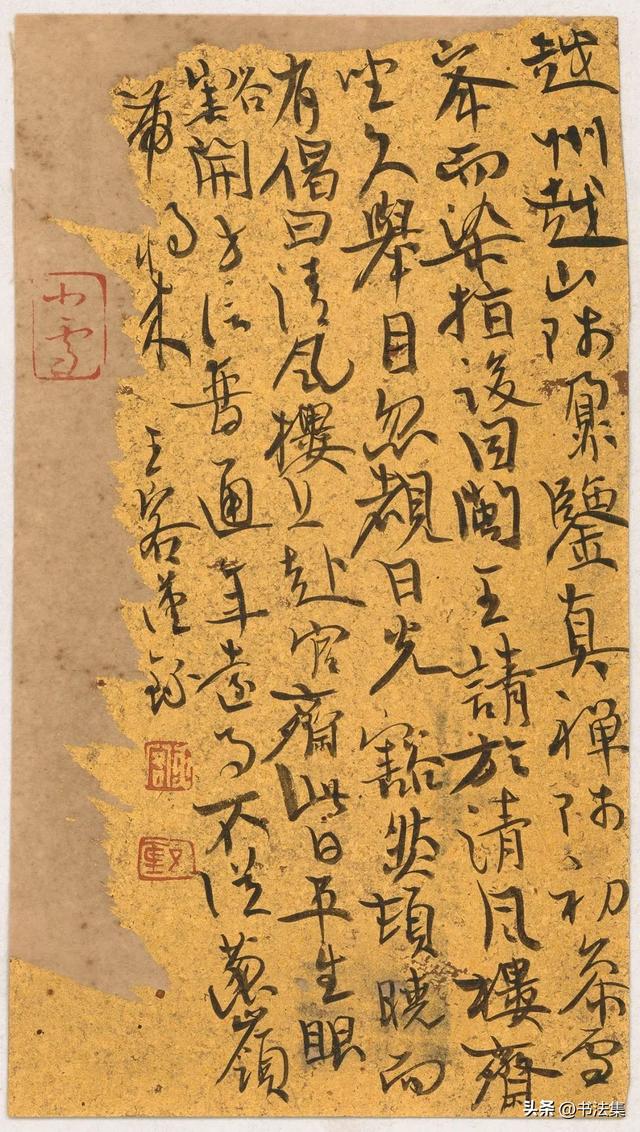 越州越山師鼐鑒真禪師初參雪
峯而染指後因閩王請於清風樓齋
坐久舉目忽覩日光豁然頓曉而
有偈曰清風樓上赴官齋此日平生眼
豁開方信普通年遠事不從葱嶺
帶得将来 王客
小雪
头条 @书法集